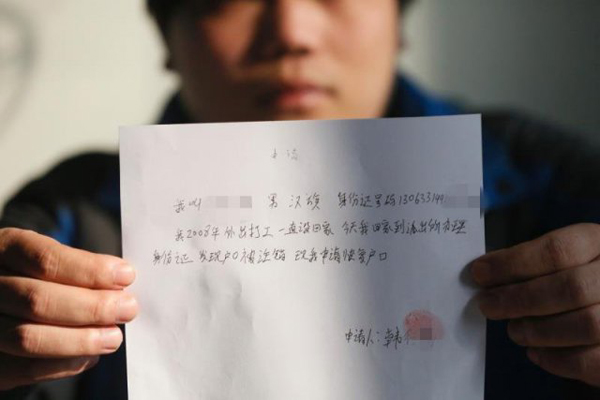 申请
我叫 男 汉族 身份证号码130633199
我2008年外出打工一直没回家 今天我回家到派出所办理
身份证 发现户口被注销 现我申请恢复户口
申请人:韩